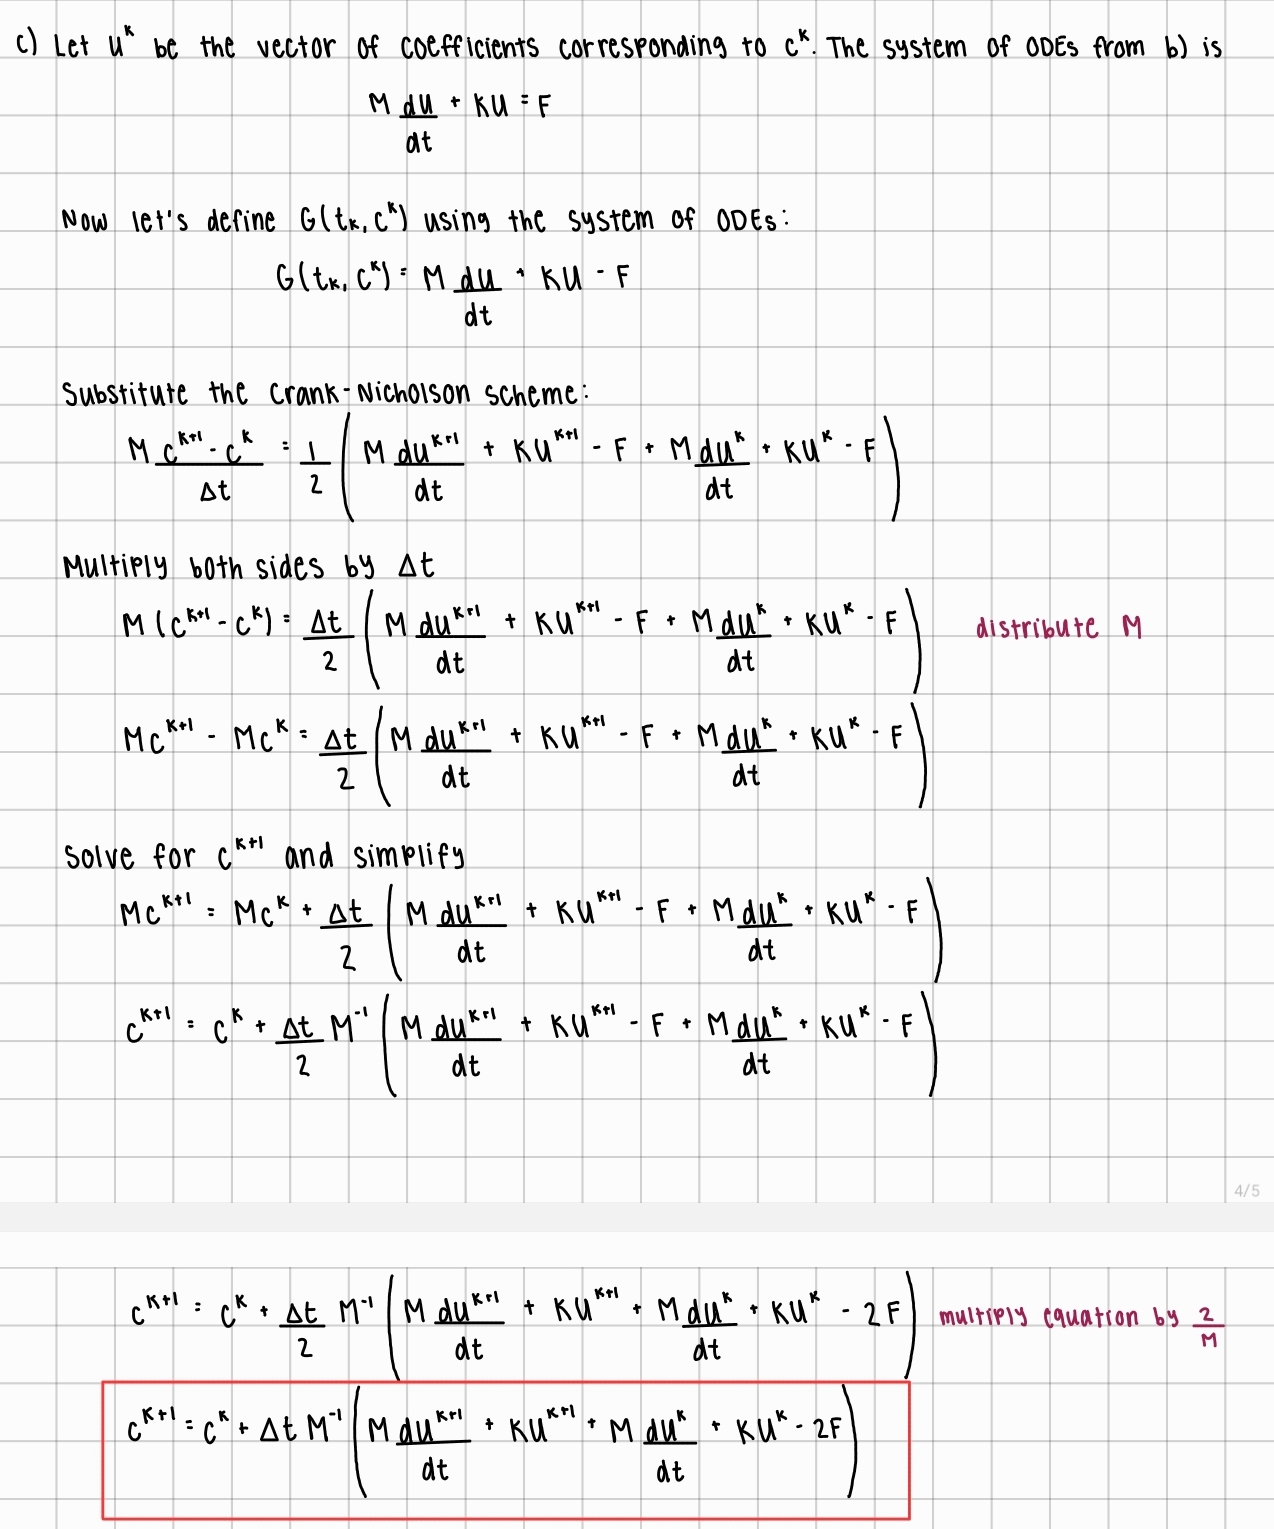 c) Let u^k be the vector of coefficients corresponding to c^k. The system of ODEs from b) is
M du/dt + KU = F
Now let's define G(t_k, c^k) using the system of ODEs:
G(t_k, c^k) = M du/dt + KU - F
Substitute the Crank-Nicholson scheme:
M (c^{k+1} - c^k)/Δt = 1/2 (M du^{k+1}/dt + KU^{k+1} - F + M du^k/dt + KU^k - F)
Multiply both sides by Δt
M (c^{k+1} - c^k) = Δt/2 (M du^{k+1}/dt + KU^{k+1} - F + M du^k/dt + KU^k - F) distribute M
Mc^{k+1} - Mc^k = Δt/2 (M du^{k+1}/dt + KU^{k+1} - F + M du^k/dt + KU^k - F)
Solve for c^{k+1} and simplify
Mc^{k+1} = Mc^k + Δt/2 (M du^{k+1}/dt + KU^{k+1} - F + M du^k/dt + KU^k - F)
c^{k+1} = c^k + Δt/2 M^{-1} (M du^{k+1}/dt + KU^{k+1} - F + M du^k/dt + KU^k - F)
4/5
c^{k+1} = c^k + Δt/2 M^{-1} (M du^{k+1}/dt + KU^{k+1} + M du^k/dt + KU^k - 2F) multiply equation by 2/M
c^{k+1} = c^k + Δt M^{-1} (M du^{k+1}/dt + KU^{k+1} + M du^k/dt + KU^k - 2F)